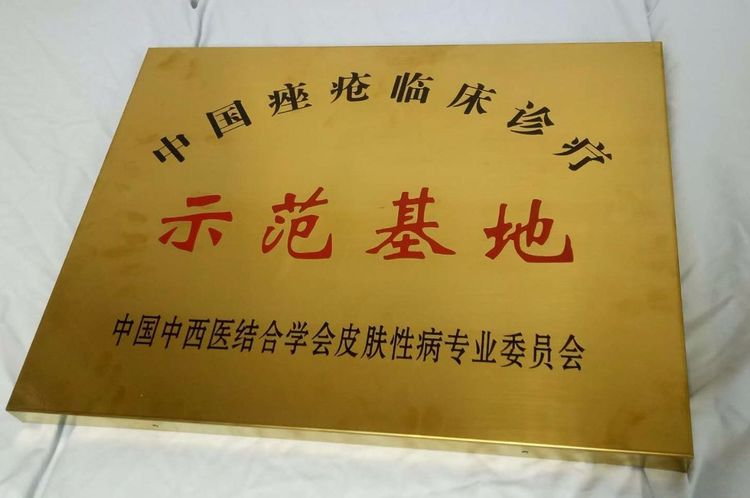 中国痤疮临床诊疗
示范基地
中国中西医结合学会皮肤性病专业委员会